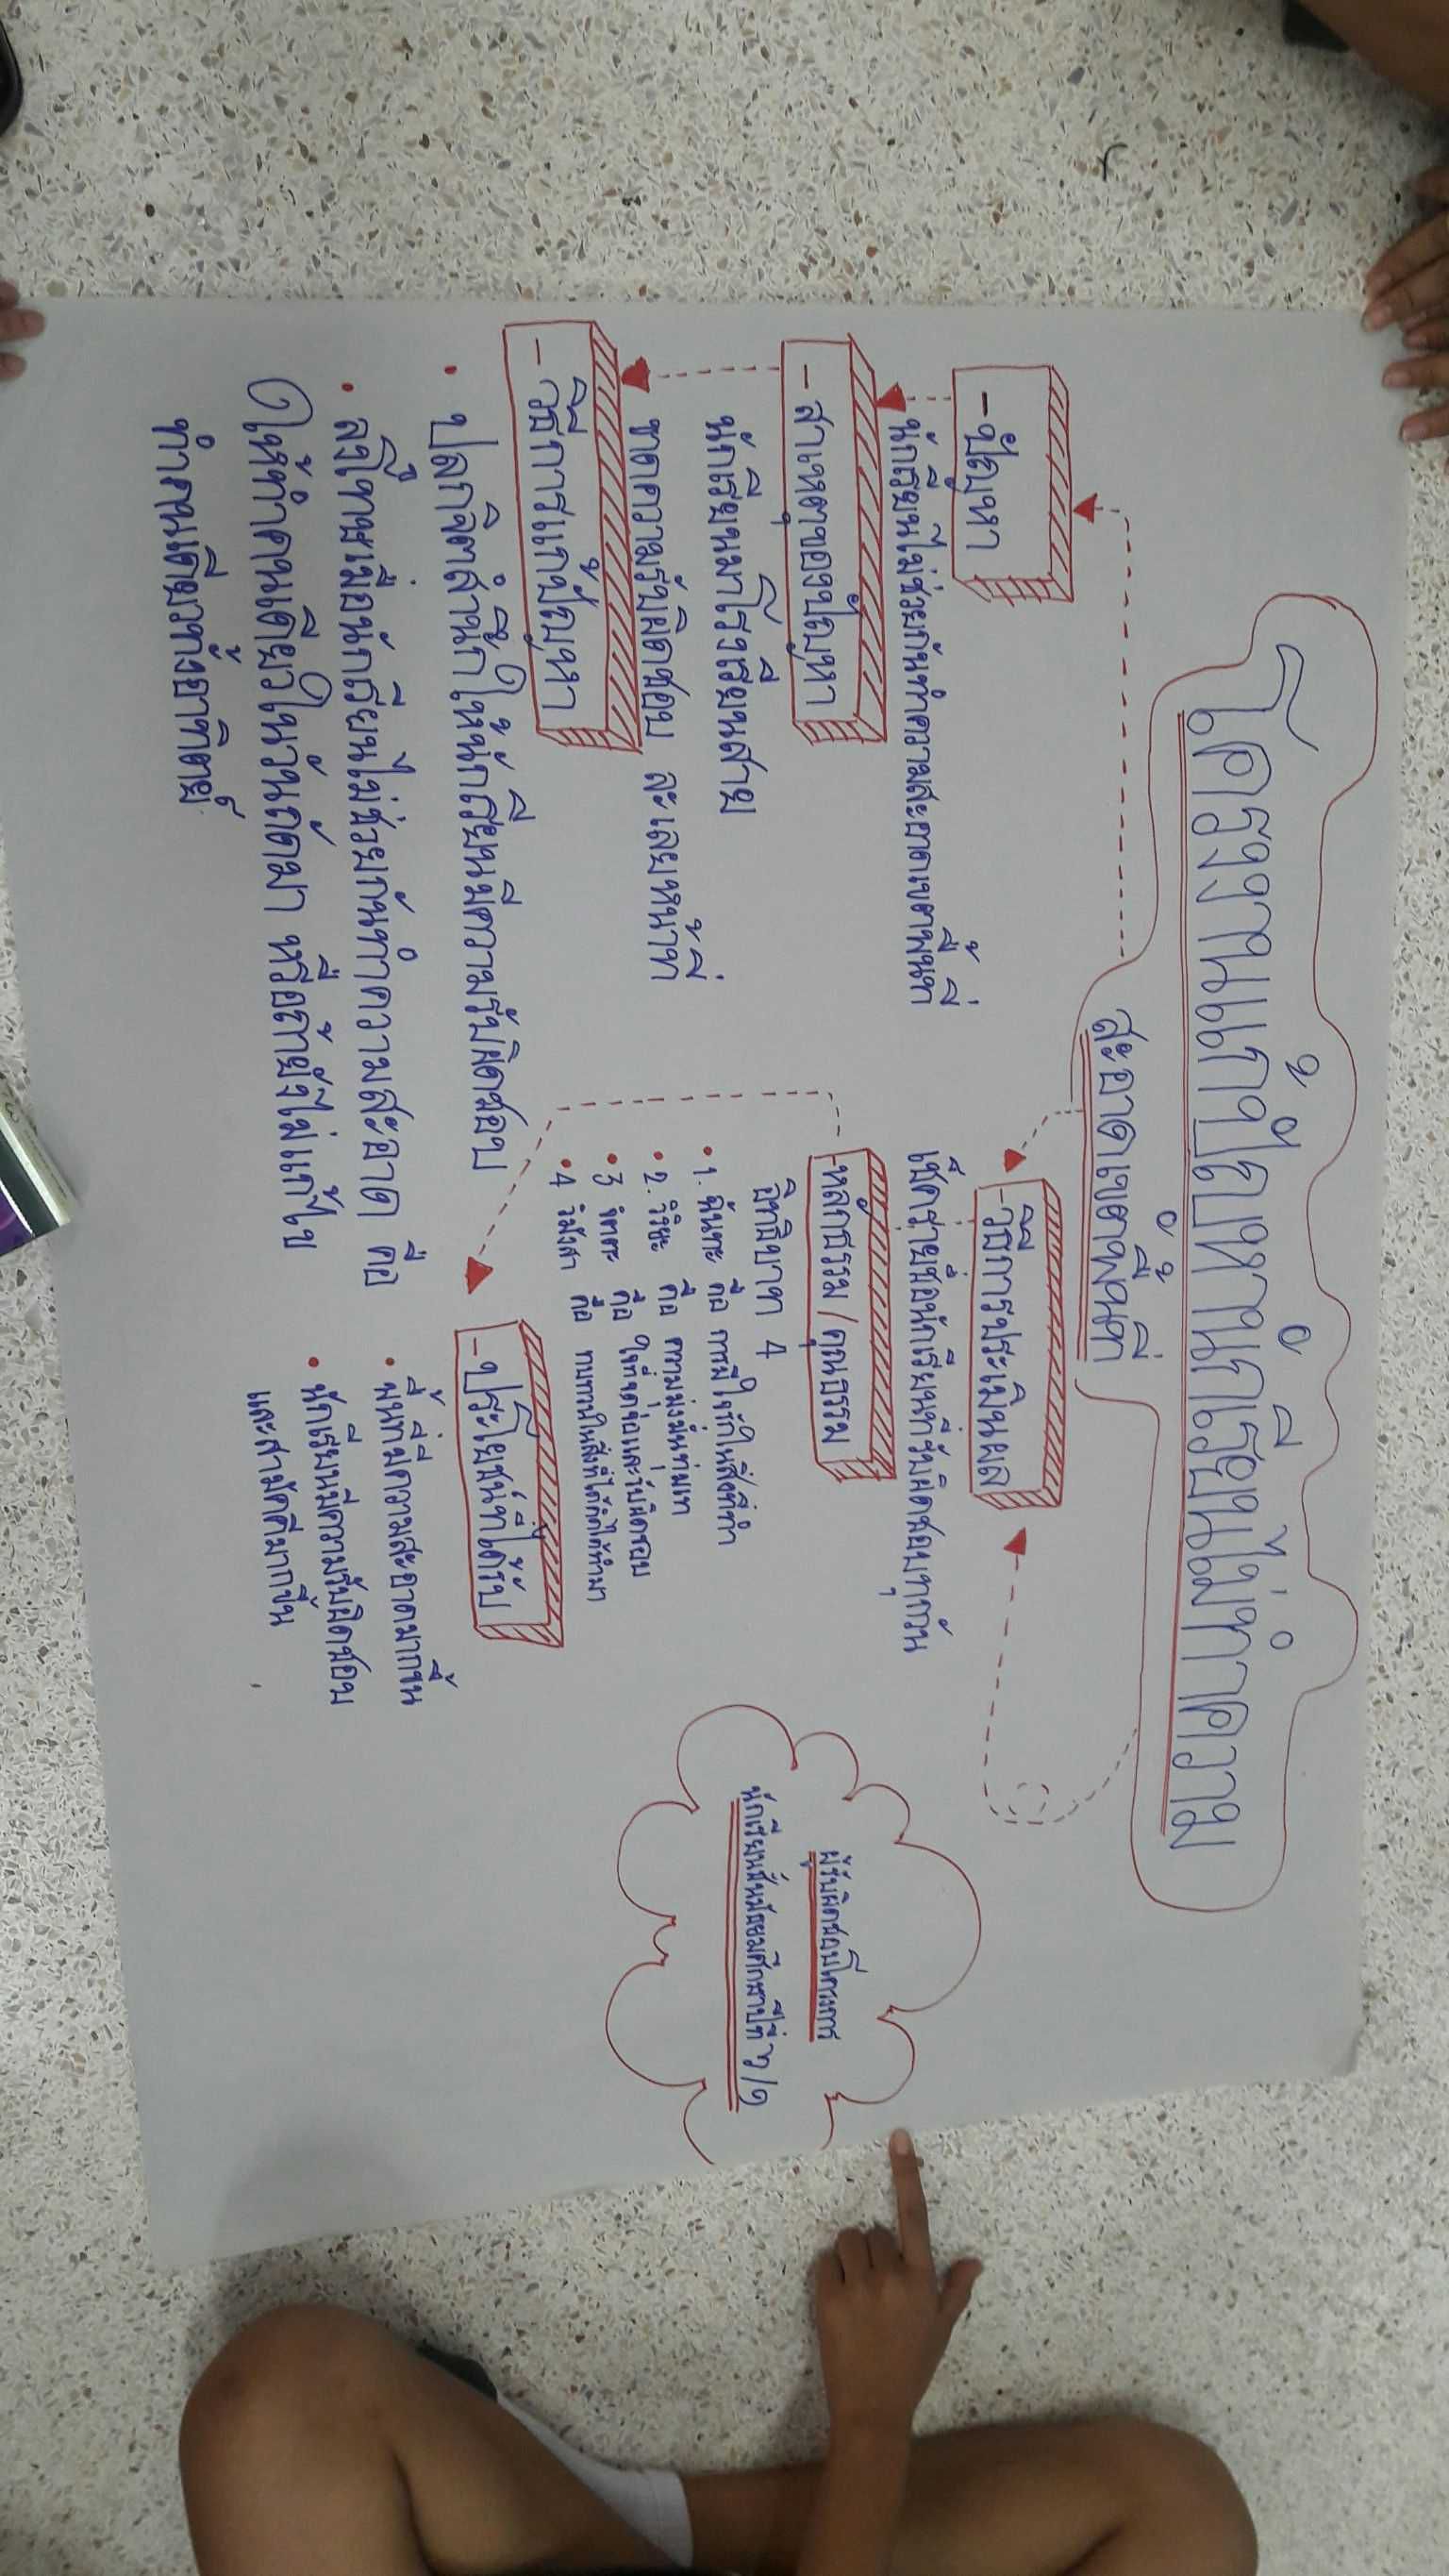 โครงงานแก้ปัญหานักเรียนไม่ทำความ
สะอาดเขตพื้นที่
- ปัญหา
นักเรียนไม่ช่วยกันทำความสะอาดเขตพื้นที่
- สาเหตุของปัญหา
นักเรียนมาโรงเรียนสาย
ขาดความรับผิดชอบ ละเลยหน้าที่
- วิธีการแก้ปัญหา
• ปลูกจิตสำนึกให้นักเรียนมีความรับผิดชอบ
• ลงโทษเมื่อนักเรียนไม่ช่วยกันทำความสะอาด คือ
ให้ทำคนเดียวในวันถัดมา หรือถ้ายังไม่แก้ไข
ทำคนเดียวทั้งอาทิตย์
- วิธีการประเมินผล
เช็ครายชื่อนักเรียนที่รับผิดชอบทุกวัน
- หลักธรรม / คุณธรรม
อิทธิบาท 4
• 1. ฉันทะ คือ การมีใจรักในสิ่งที่ทำ
• 2. วิริยะ คือ ความมุ่งมั่นทุ่มเท
• 3 จิตตะ คือ ใจที่จดจ่อและรับผิดชอบ
• 4 วิมังสา คือ ทบทวนในสิ่งที่ได้คิดได้ทำมา
- ประโยชน์ที่ได้รับ
• พื้นที่มีความสะอาดมากขึ้น
• นักเรียนมีความรับผิดชอบ
และสามัคคีมากขึ้น
ผู้รับผิดชอบโครงการ
นักเรียนชั้นมัธยมศึกษาปีที่ ๖/๑